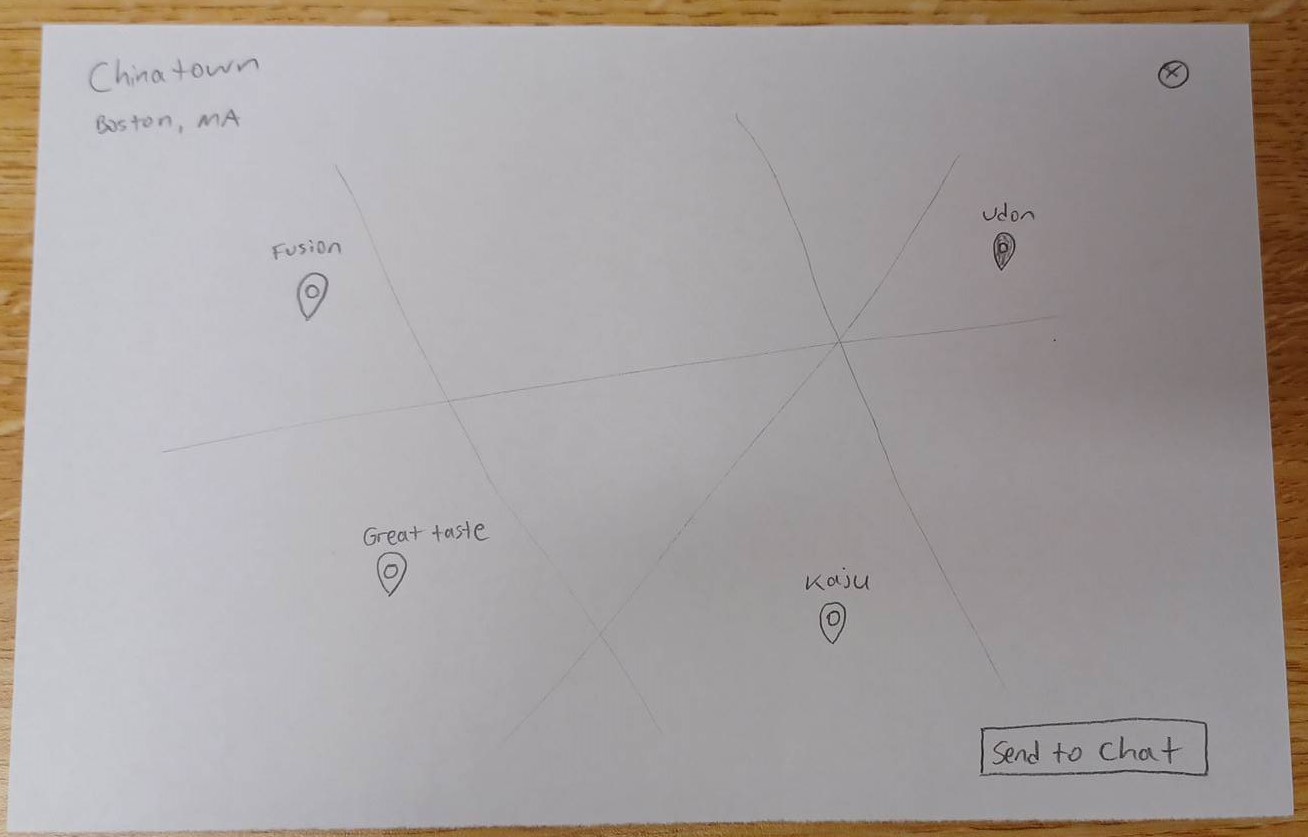 Chinatown
Boston, MA
Udon
Fusion
Great taste
Kaiju
Send to Chat